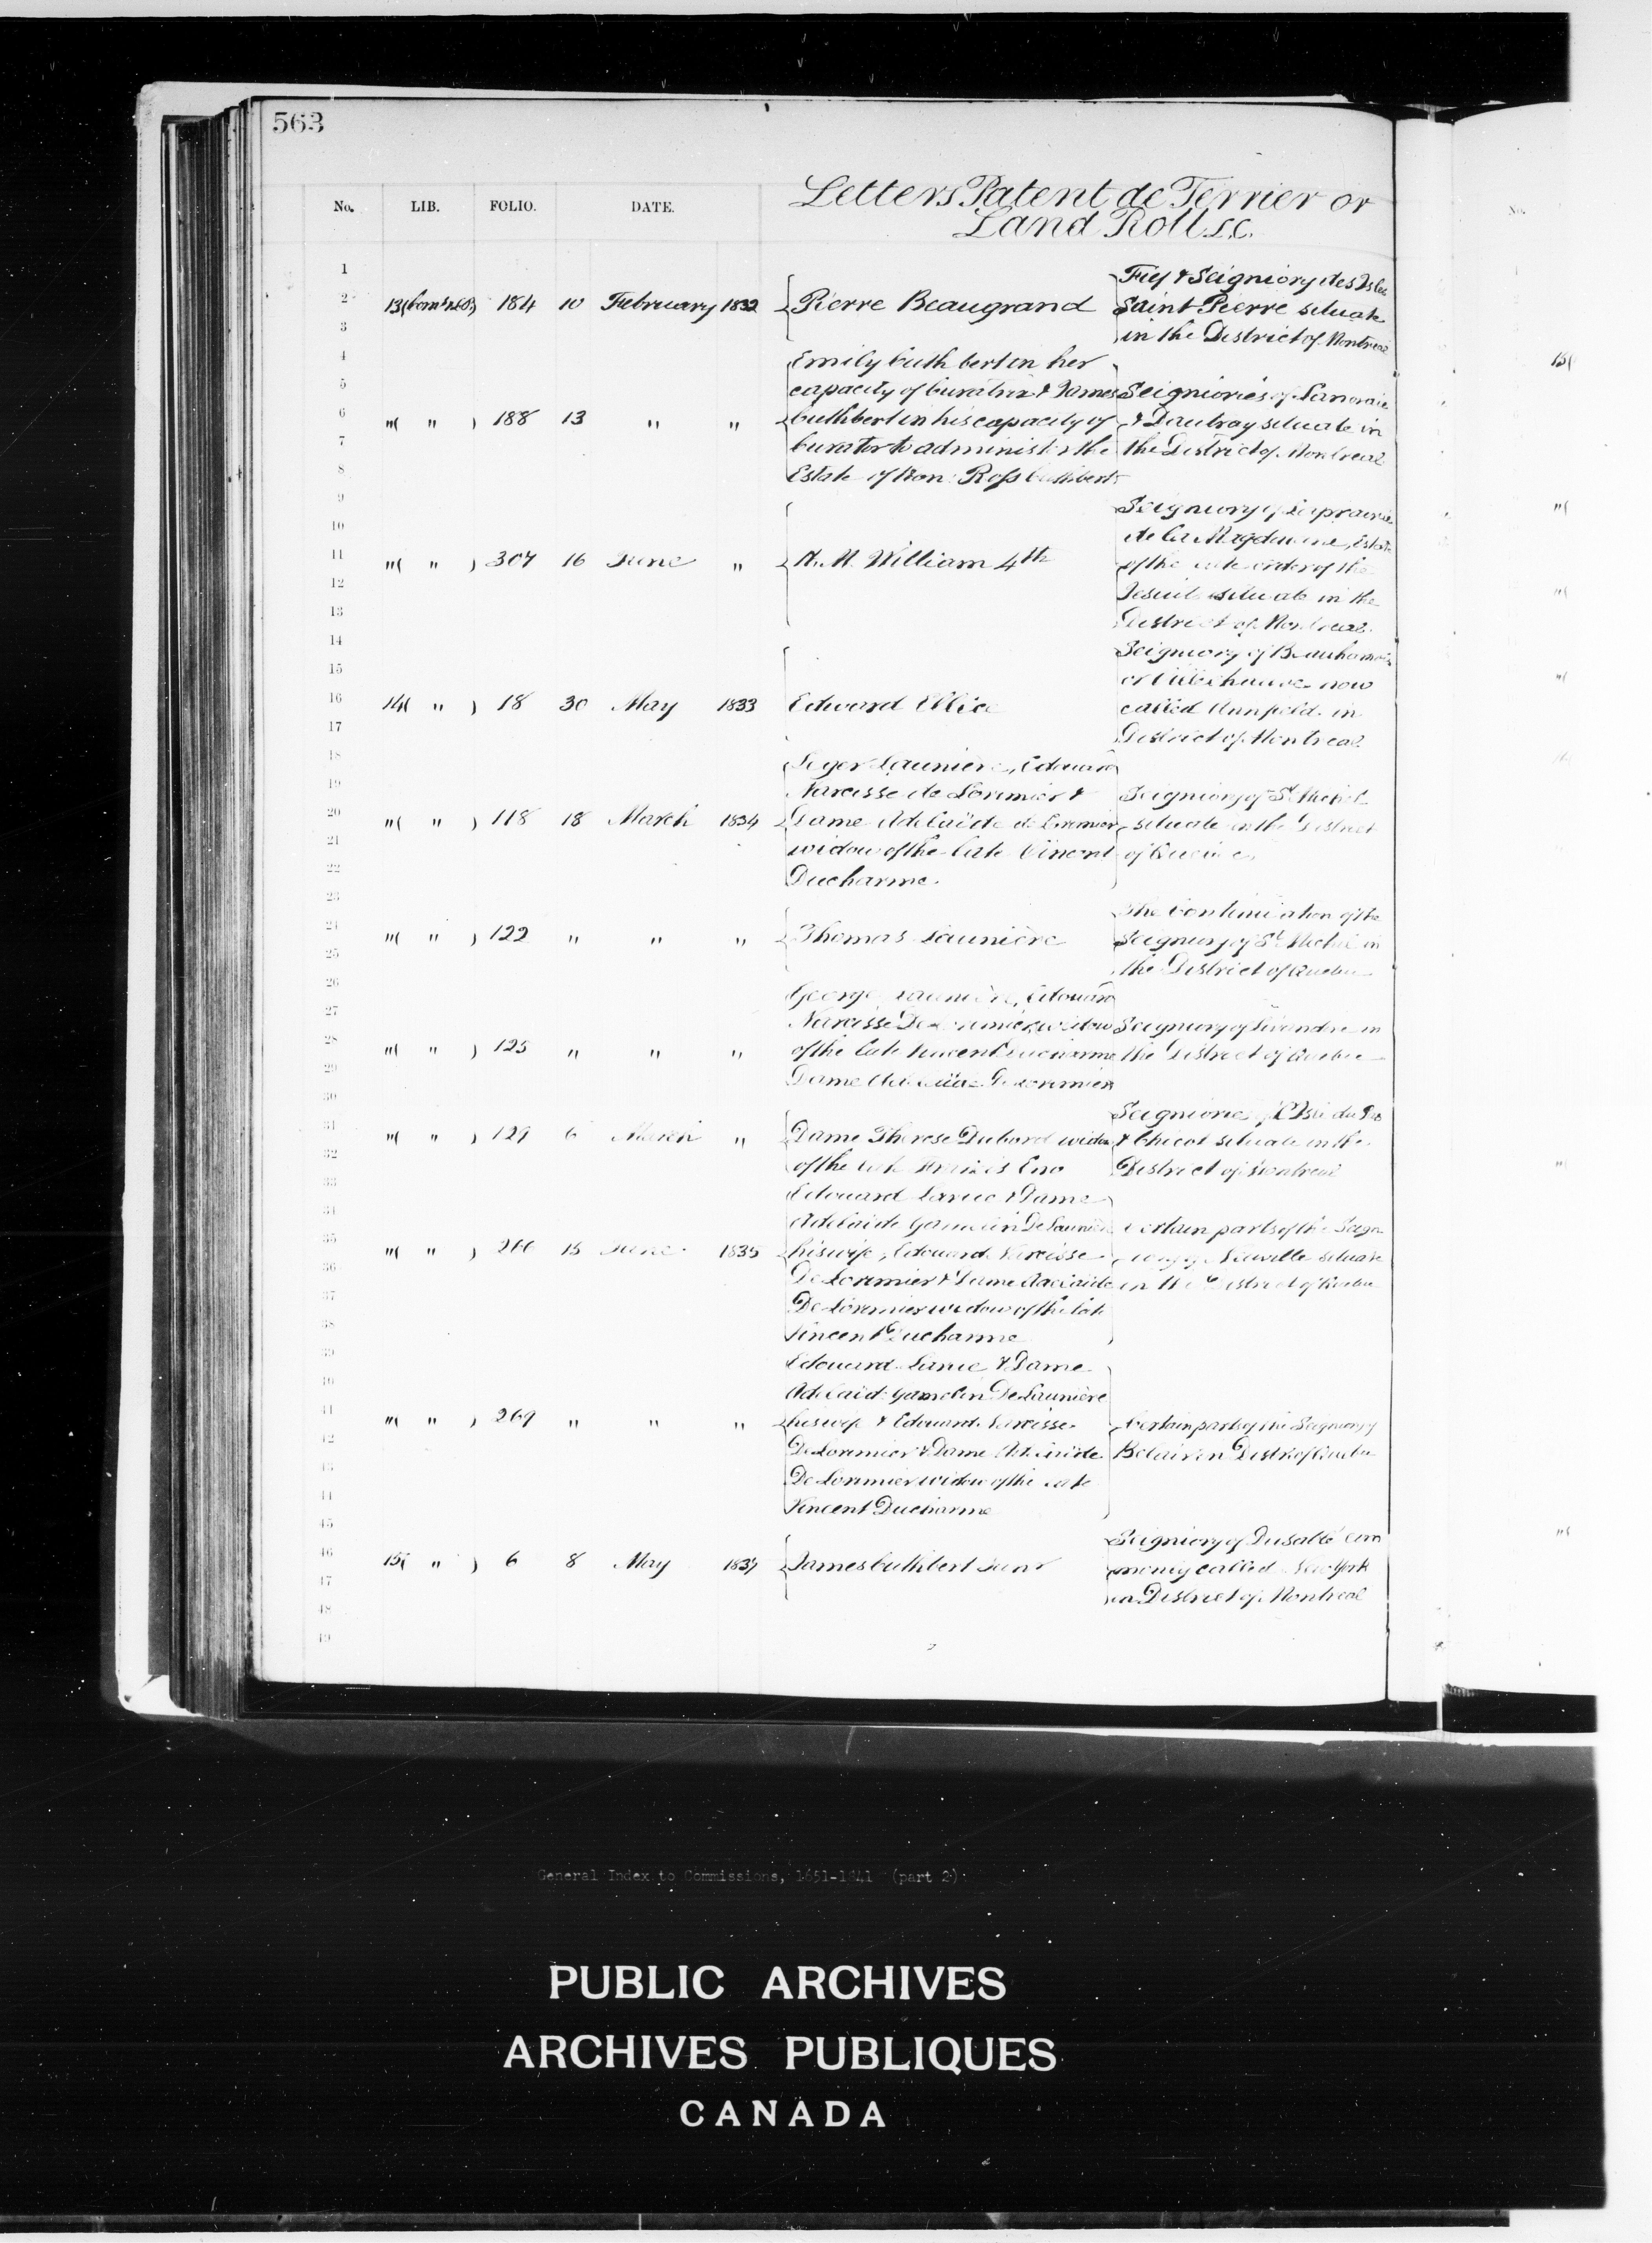 563
Letters Patent de Terrier or
Land Roll L.C.
No. LIB. FOLIO. DATE.
1
2
3
4
5
6
7
8
9
10
11
12
13
14
15
16
17
18
19
20
21
22
23
24
25
26
27
28
29
30
31
32
33
34
35
36
37
38
39
40
41
42
43
44
45
46
47
48
49
13( ) 184 10 February 1832 Pierre Beaugrand
Fief & Seigniory des Isles
Saint Pierre situate
in the District of Montreal
"( " ) 188 13 " "
Emily Cuthbert in her
capacity of Curatrix & James
Cuthbert in his capacity of
Curator to administer the
Estate of Hon: Ross Cuthbert
Seigniories of Lanoraie
& Dautray situate in
the District of Montreal
"( " ) 307 16 June " H. M. William 4th
Seigniory of Laprairie
de la Magdeleine, Estate
of the late order of the
Jesuits situate in the
District of Montreal
14( " ) 18 30 May 1833 Edward Ellice
Seigniory of Beauharnois
or now
called in
District of Montreal
"( " ) 118 18 March 1834
Launière, Edouard
Narcisse de Lorimier &
Dame Adelaïde de Lorimier
widow of the late Vincent
Ducharme.
Seigniory of St Michel
situate in the District
of Quebec
"( " ) 122 " " " Thomas Launière
The Continuation of the
Seigniory of St Michel in
the District of Quebec
"( " ) 125 " " "
George Launière, Edouard
Narcisse De Lorimier, widow
of the late Vincent Ducharme
Dame Adelaïde De Lorimier
Seigniory of in
the District of Quebec
"( " ) 129 6 March "
Dame Therese Dubord widow
of the late Eno
Seigniories L'Isle du Pas
& Chicot situate in the
District of Montreal
"( " ) 266 15 June 1835
Edouard Larue & Dame
Adelaide Gamelin De Launière
his wife, Edouard Narcisse
De Lorimier & Dame Adelaide
De Lorimier widow of the late
Vincent Ducharme
Certain parts of the Seign-
iory of Neuville situate
in the District of Quebec
"( " ) 269 " " "
Edouard Larue & Dame
Adelaïde Gamelin De Launière
his wife & Edouard Narcisse
De Lorimier & Dame Adelaide
De Lorimier widow of the late
Vincent Ducharme
Certain part of the Seigniory
Belair in Distr of Quebec
15( " ) 6 8 May 1837 James Cuthbert Junr
Seigniory of Dusablé com
monly called New York
in District of Montreal
General Index to Commissions, 1651-1841 (part 2)
PUBLIC ARCHIVES
ARCHIVES PUBLIQUES
CANADA